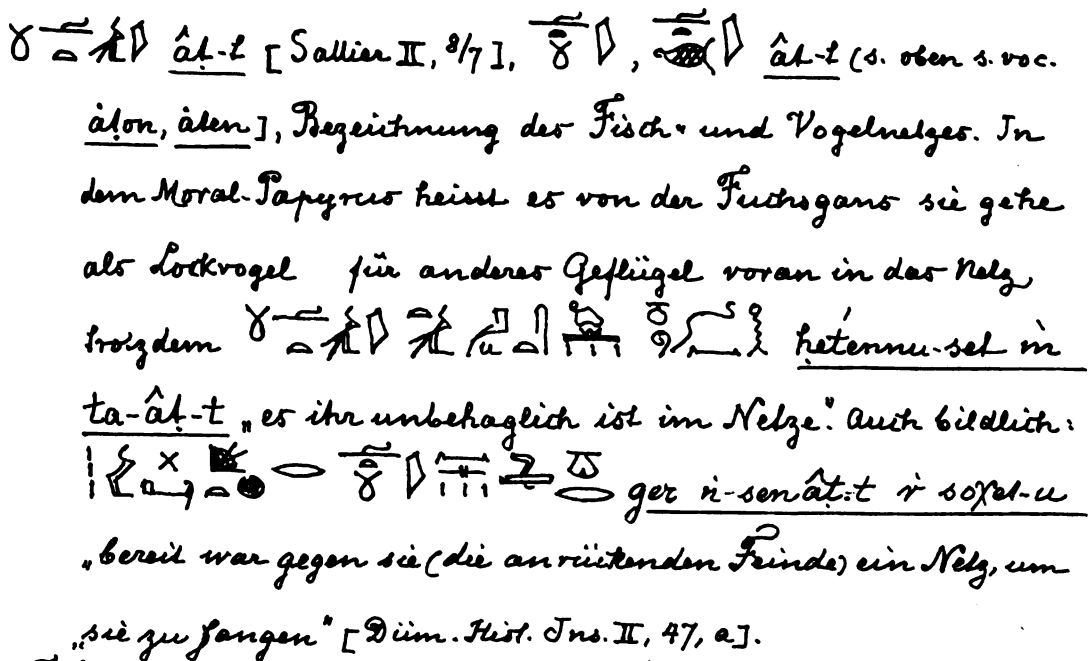 âṭ-t [Sallier II, 8/7], âṭ-t (s. oben s. voc.
àṭon, àten], Bezeichnung des Fisch- und Vogelnetzes. In
dem Moral-Papyrus heisst es von der Fuchsgans sie gehe
als Lockvogel für anderes Geflügel voran in das Netz,
trotzdem ḥetennu-set m
ta-âṭ-t „es ihr unbehaglich ist im Netze". Auch bildlich:
ger n-sen âṭ-t r soχet-u
„bereit war gegen sie (die anrückenden Feinde) ein Netz, um
„sie zu fangen" [Düm. Hist. Ins. II, 47, a].